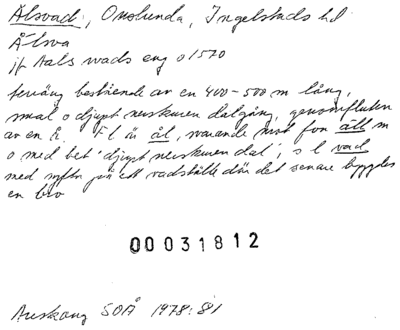 Älsvad, Onslunda, Ingelstads hd
Älsva
jf Aals wads eng o 1570
terräng bestående av en 400-500 m lång,
smal o djupt nerskuren dalgång, genomfluten
av en å. F l är äl, svarande mot fvn áll m
o med bet 'djupt nerskuren dal'; s l vad
med syftn på ett vadställe där det senare byggdes
en bro
00031812
SOÅ 1978:81